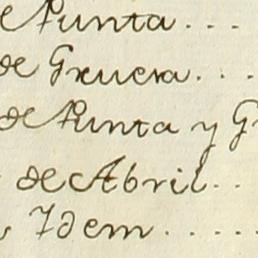 de Punta ....
de Gruera ....
de Punta y G
de Abril ..
Idem .....